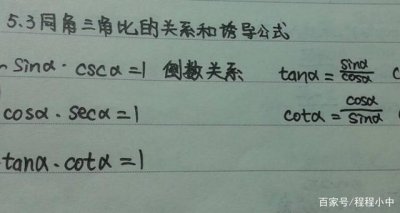 5.3同角三角比的关系和诱导公式
sinα·cscα=1 倒数关系 tanα=sinα/cosα
cosα·secα=1 cotα=cosα/sinα
tanα·cotα=1
百家号/程程小中